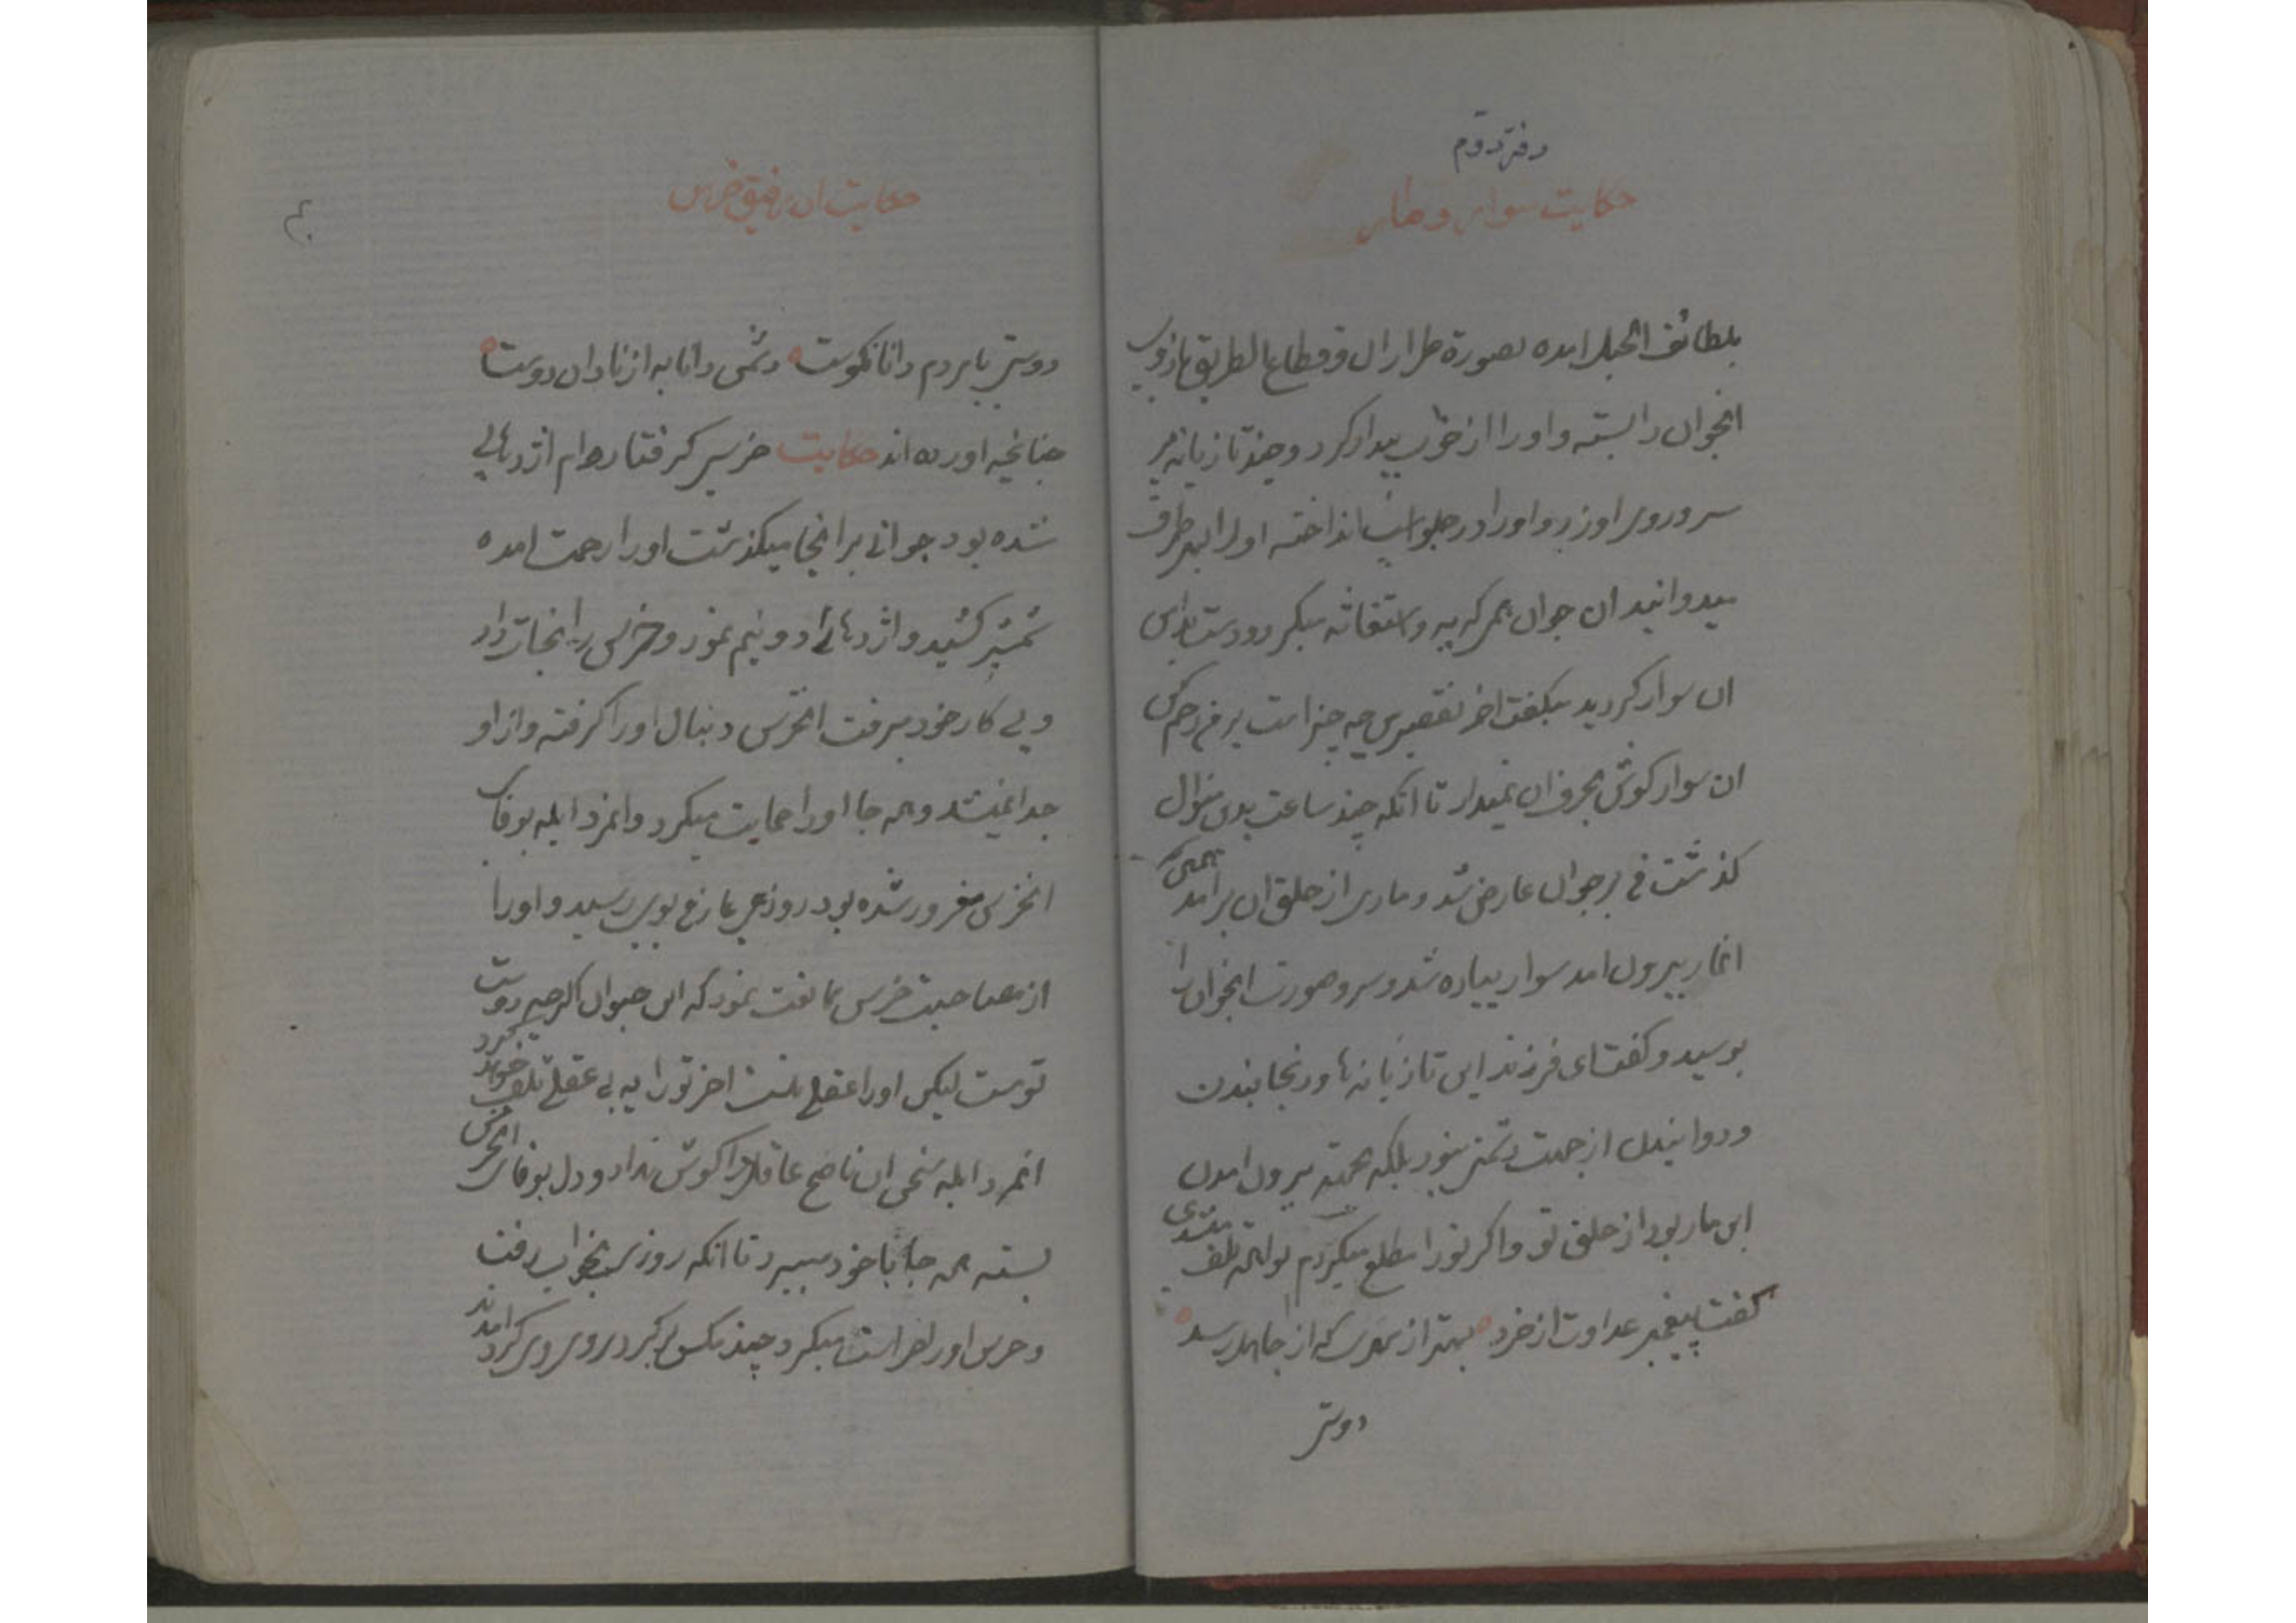 دفتر دوم
حکایت سوار و مار
بلطائف الحیل امده بصورة طراران و قطاع الطریق بازوی
انجوان را بسته و او را از خواب بیدار کرد و چند تازیانه بر
سر و روی او زد و او را در جلو اسب انداخته او را بهر طرف
میدوانید ان جوان گریه و استغاثه میکرد و دست
ان سوار کردید میگفت اخر تقصیر من چه چیز است بر من رحم کن
ان سوار کوش بحرف ان نمیداد تا انکه چند ساعت بدین منوال
کذشت قی بر جوان عارض شد و ماری از حلق ان برامد همین که
انمار بیرون امد سوار پیاده شد و سر و صورت انجوان را
بوسید و کفت ای فرزند این تازیانه ها و رنجانیدن
و دوانیدن از جهت دشمنی نبود بلکه بجهته بیرون امدن
این مار بود از حلق تو و اکر تو را مطلع میکردم تلف میشدی
کفت پیغمبر عداوت از خرد بهتر از مهری که از جاهل رسد
دوستی
حکایت ان رفیق خرس
دوستی با مردم دانا نکوست دشمن دانا به از نادان دوست
چنانچه اورده اند حکایت خرسی کرفتار دام اژدهائی
شده بود جوانی بر انجا میکذشت او را رحمت امده
شمشیر کشید و اژدها را دو نیم نمود و خرس را نجات داد
و پی کار خود میرفت انخرس دنبال او را کرفته و از او
جدا نمیشد و همه جا او را حمایت میکرد و انمرد ابله بوفای
انخرس مغرور شده بود روزی عارفی بوی رسید و او را
از مصاحبت خرس ممانعت نمود که این حیوان اکرچه دوست
توست لیکن او را عقلی نیست اخر تو را به بی عقلی تلف خواهد کرد
انمرد ابله سخن ان ناصح عاقل را کوش نداد و دل بوفای انخرس
بسته همه جا با خود میبرد تا انکه روزی بخواب رفت
و خرس او را حراست میکرد چند مکس بر کرد روی وی کرد امدند